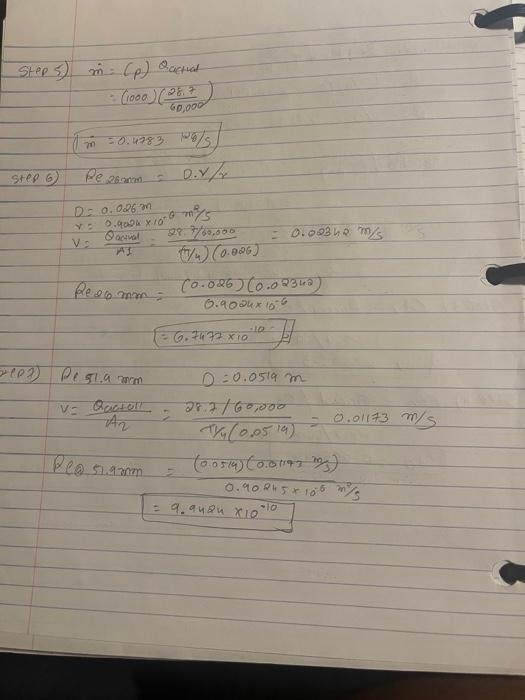 Step 5) ṁ = (ρ) Qactual
= (1000) (28.7/60,000)
ṁ = 0.4783 kg/s
Step 6) Re 26mm = D.V/ν
D = 0.026 m
ν = 0.9024 x 10^-6 m²/s
V = Qactual/A1 = 28.7/60,000/(π/4)(0.026) = 0.02342 m/s
Re 26 mm = (0.026)(0.02342)/0.9024 x 10^-6
= 6.7477 x 10^-10
Step 7) Re 51.9 mm D = 0.0519 m
V = Qactual/A2 = 28.7/60,000/π/4 (0.0519) = 0.01173 m/s
Re@ 51.9mm = (0.0519)(0.01173 m/s)/0.90245 x 10^-6 m²/s
= 9.9424 x 10^-10